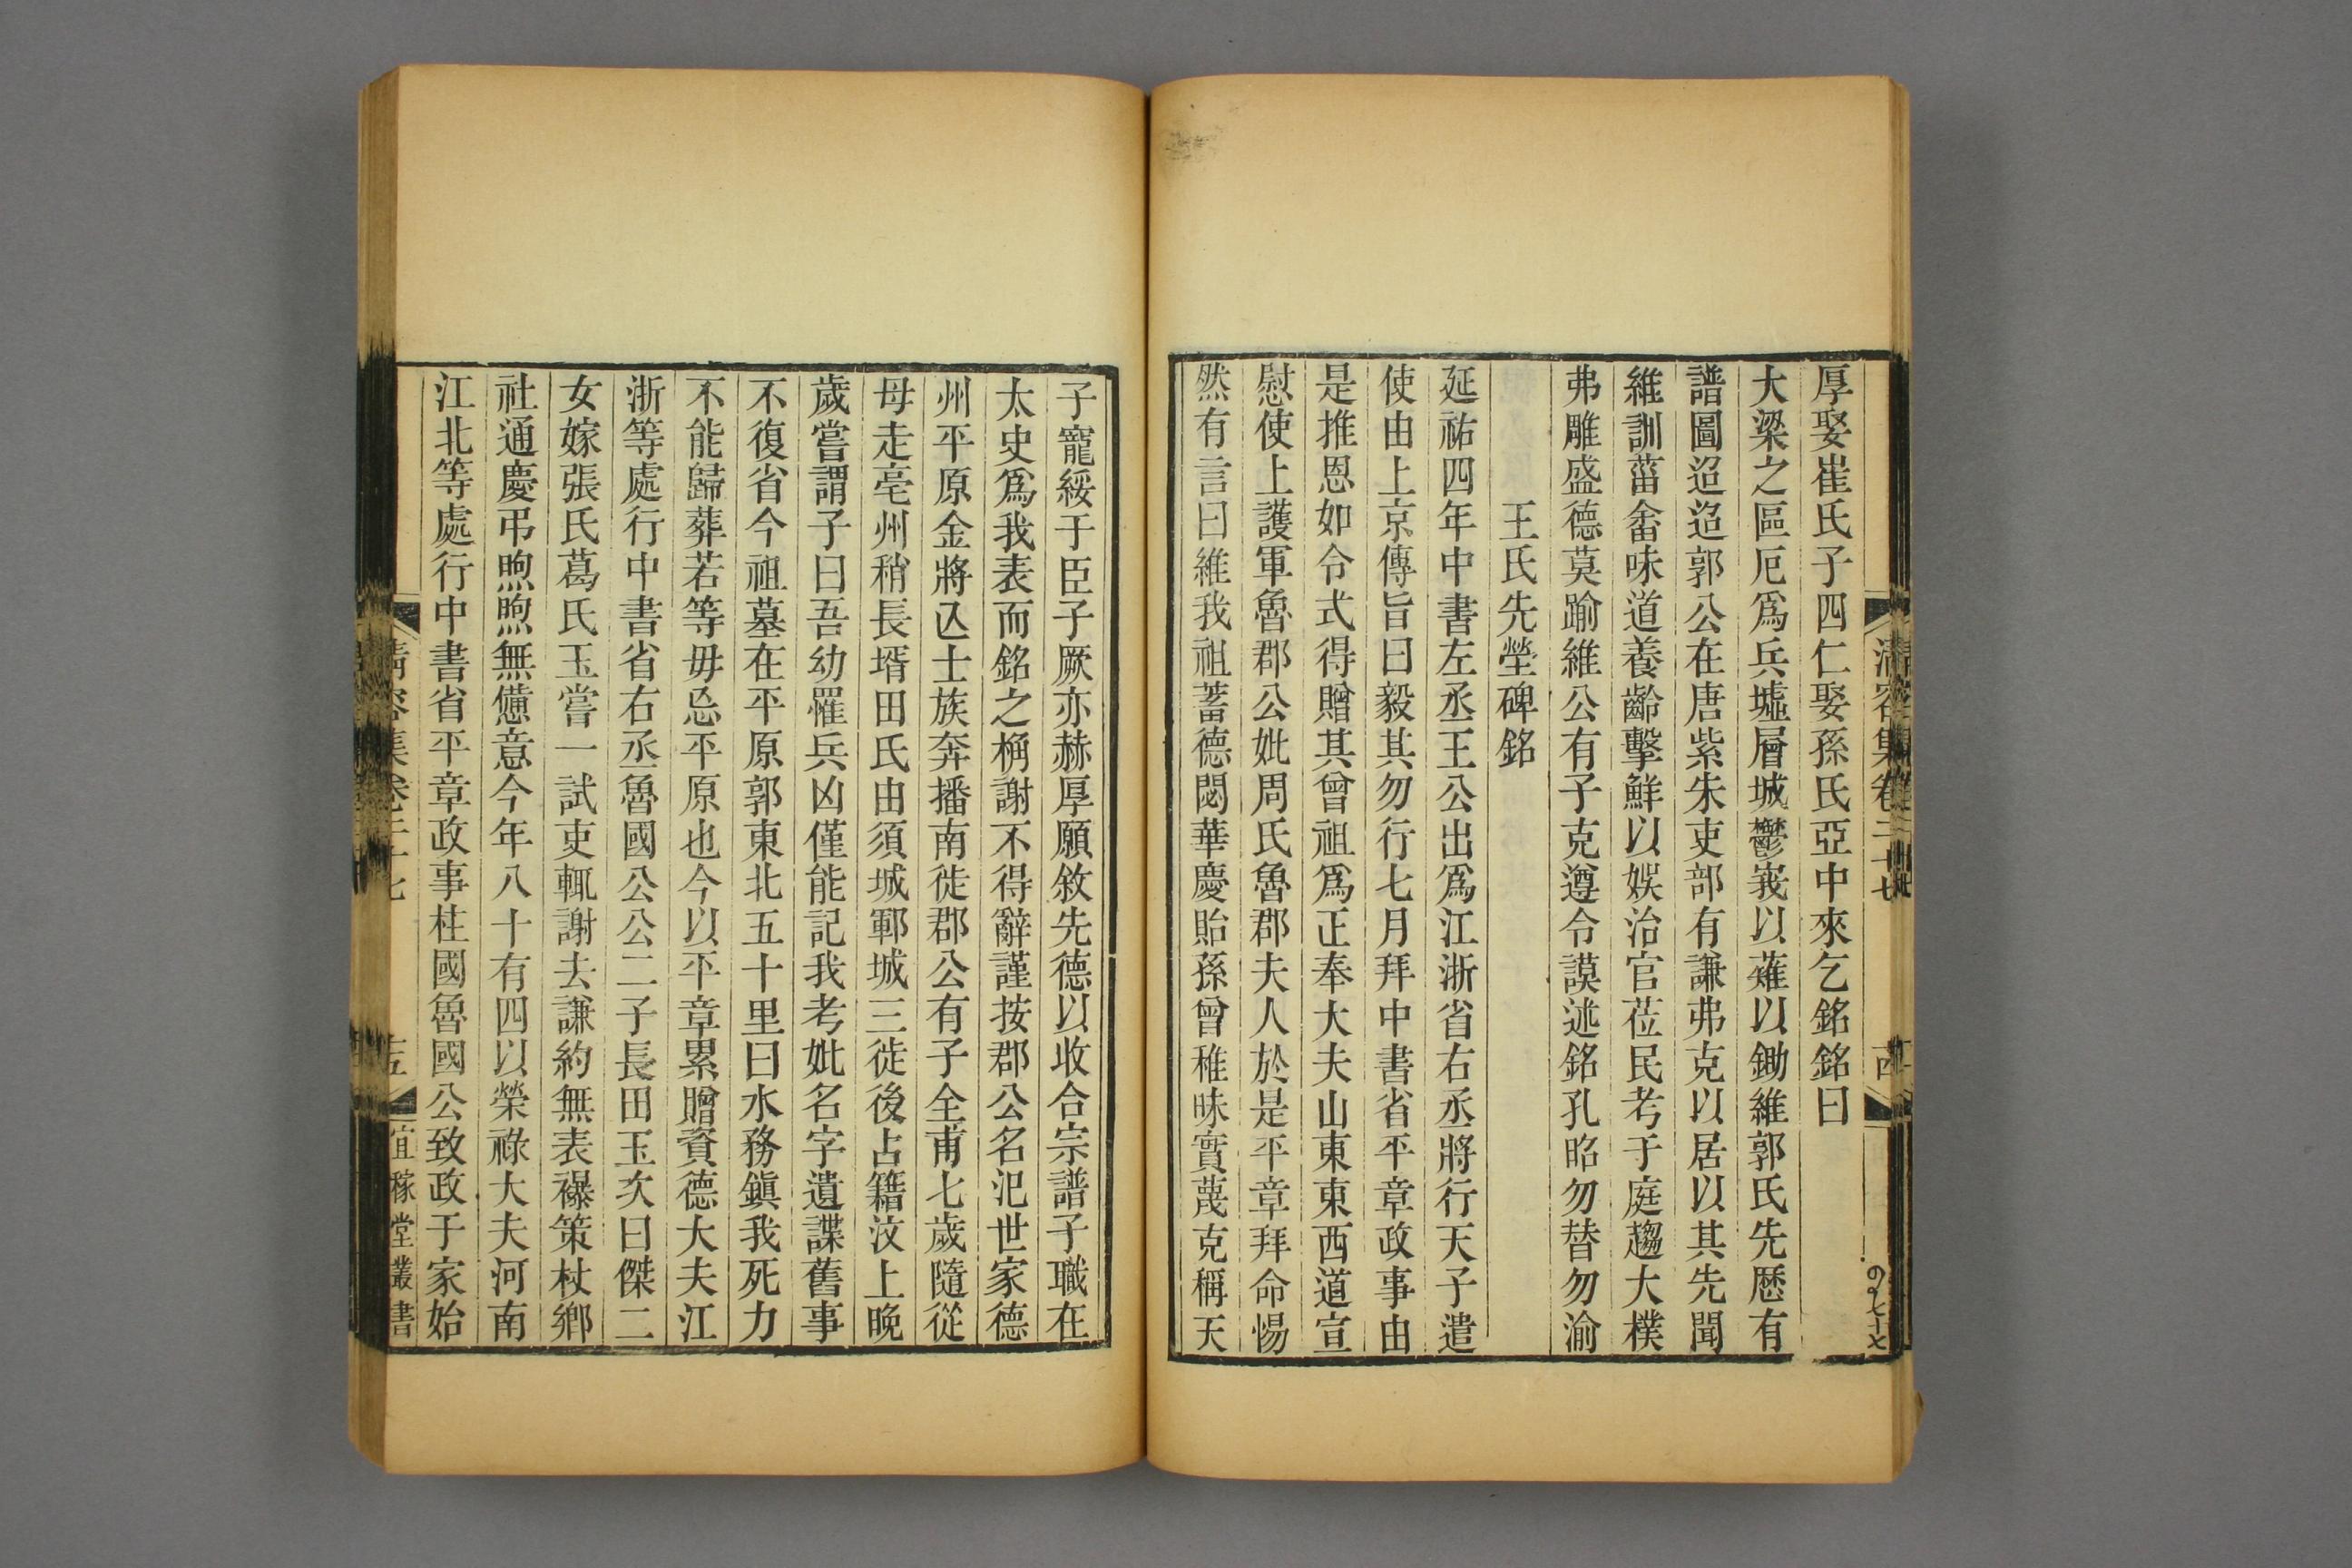 厚娶崔氏子四仁娶孫氏亞中來乞銘銘曰
大梁之區厄爲兵墟層城鬱峩以薙以鋤維郭氏先厯有
譜圖迢迢郭公在唐紫朱吏部有謙弗克以居以其先聞
維訓菑畬味道養齡擊鮮以娛治官莅民考于庭趨大樸
弗雕盛德莫踰維公有子克遵令謨述銘孔昭勿替勿渝
王氏先塋碑銘
延祐四年中書左丞王公出爲江浙省右丞將行天子遣
使由上京傳旨曰毅其勿行七月拜中書省平章政事由
是推恩如令式得贈其曾祖爲正奉大夫山東東西道宣
慰使上護軍魯郡公妣周氏魯郡夫人於是平章拜命惕
然有言曰維我祖蓄德閟華慶貽孫曾稚昧實蔑克稱天
子寵綏于臣子厥亦赫厚願敘先德以收合宗譜子職在
太史爲我表而銘之桷謝不得辭謹按郡公名汜世家德
州平原金將亾士族奔播南徙郡公有子全甫七歲隨從
母走亳州稍長壻田氏由須城鄆城三徙後占籍汶上晚
歲嘗謂子曰吾幼罹兵凶僅能記我考妣名字遺諜舊事
不復省今祖墓在平原郭東北五十里曰水務鎭我死力
不能歸葬若等毋忘平原也今以平章累贈資德大夫江
浙等處行中書省右丞魯國公公二子長田玉次曰傑二
女嫁張氏葛氏玉嘗一試吏輒謝去謙約無表襮策杖鄉
社通慶弔煦煦無憊意今年八十有四以榮祿大夫河南
江北等處行中書省平章政事柱國魯國公致政于家始
清容集卷二十七
十五
宜稼堂叢書